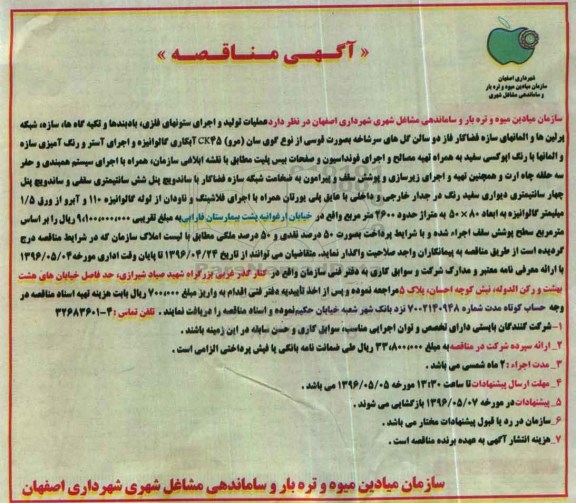 شهرداری اصفهان
سازمان میادین میوه و تره بار
و ساماندهی مشاغل شهری
« آگـهـی مـنـاقـصـه »
سازمان میادین میوه و تره بار و ساماندهی مشاغل شهری شهرداری اصفهان در نظر دارد عملیات تولید و اجرای ستونهای فلزی، بادبندها و تکیه گاه ها، سازه، شبکه
پرلین ها و المانهای سازه فضاکار فاز دو سالن گل های سرشاخه بصورت قوسی از نوع گوی سان (مرو) CK45 آبکاری گالوانیزه و اجرای آستر و رنگ آمیزی سازه
و المانها با رنگ اپوکسی سفید به همراه تهیه مصالح و اجرای فونداسیون و صفحات بیس پلیت مطابق با نقشه ابلاغی سازمان، همراه با اجرای سیستم همبندی و حفر
سه حلقه چاه ارت و همچنین تهیه و اجرای زیرسازی و پوشش سقف و پیرامون به ضخامت شبکه سازه فضاکار با ساندویچ پنل شش سانتیمتری سقفی و ساندویچ پنل
چهار سانتیمتری دیواری سفید رنگ در جدار خارجی و داخلی با عایق پلی یورتان همراه با اجرای فلاشینگ و ناودان از لوله گالوانیزه ۱۱۰ و آبرو از ورق ۱/۵
میلیمتر گالوانیزه به ابعاد ۸۰ × ۵۰ به متراژ حدود ۲۶۰۰ متر مربع واقع در خیابان ارغوانیه پشت بیمارستان فارابی به مبلغ تقریبی ۹،۱۰۰،۰۰۰،۰۰۰ ریال را بر اساس
مترمربع سطح پوشش سقف اجراء شده و با شرایط پرداخت بصورت ۵۰ درصد نقدی و ۵۰ درصد ملکی مطابق با لیست املاک سازمان که در شرایط مناقصه درج
گردیده است از طریق مناقصه به پیمانکاران واجد صلاحیت واگذار نماید. متقاضیان می توانند از تاریخ ۱۳۹۶/۰۴/۲۴ تا پایان وقت اداری مورخه ۱۳۹۶/۰۵/۰۴
با ارائه معرفی نامه معتبر و مدارک شرکت و سوابق کاری به دفتر فنی سازمان واقع در کنار گذر غربی بزرگراه شهید صیاد شیرازی، حد فاصل خیابان های هشت
بهشت و رکن الدوله، نبش کوچه احسان، پلاک ۵ مراجعه نموده و پس از اخذ تأییدیه دفتر فنی اقدام به واریز مبلغ ۷۰۰،۰۰۰ ریال بابت هزینه تهیه اسناد مناقصه در
وجه حساب کوتاه مدت شماره ۷۰۰۲۱۴۰۹۴۸ نزد بانک شهر شعبه خیابان حکیم نموده و اسناد مناقصه را دریافت نمایند . تلفن تماس : ۴-۳۲۶۸۳۶۰۱
۱- شرکت کنندگان بایستی دارای تخصص و توان اجرایی مناسب، سوابق کاری و حسن سابقه در این زمینه باشند .
۲_ ارائه سپرده شرکت در مناقصه به مبلغ ۳۳،۸۰۰،۰۰۰ ریال طی ضمانت نامه بانکی یا فیش پرداختی الزامی است .
۳_ مدت اجراء : ۲ ماه شمسی می باشد .
۴_ مهلت ارسال پیشنهادات تا ساعت ۱۳:۳۰ مورخه ۱۳۹۶/۰۵/۰۵ می باشد .
۵_ پیشنهادات در مورخه ۱۳۹۶/۰۵/۰۷ بازگشایی می شوند .
۶_ سازمان در رد یا قبول پیشنهادات مختار می باشد .
۷_ هزینه انتشار آگهی به عهده برنده مناقصه است .
سازمان میادین میوه و تره بار و ساماندهی مشاغل شهری شهرداری اصفهان